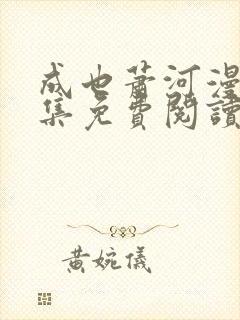 成也蕭河漫
集免費閱讀
黃婉儀